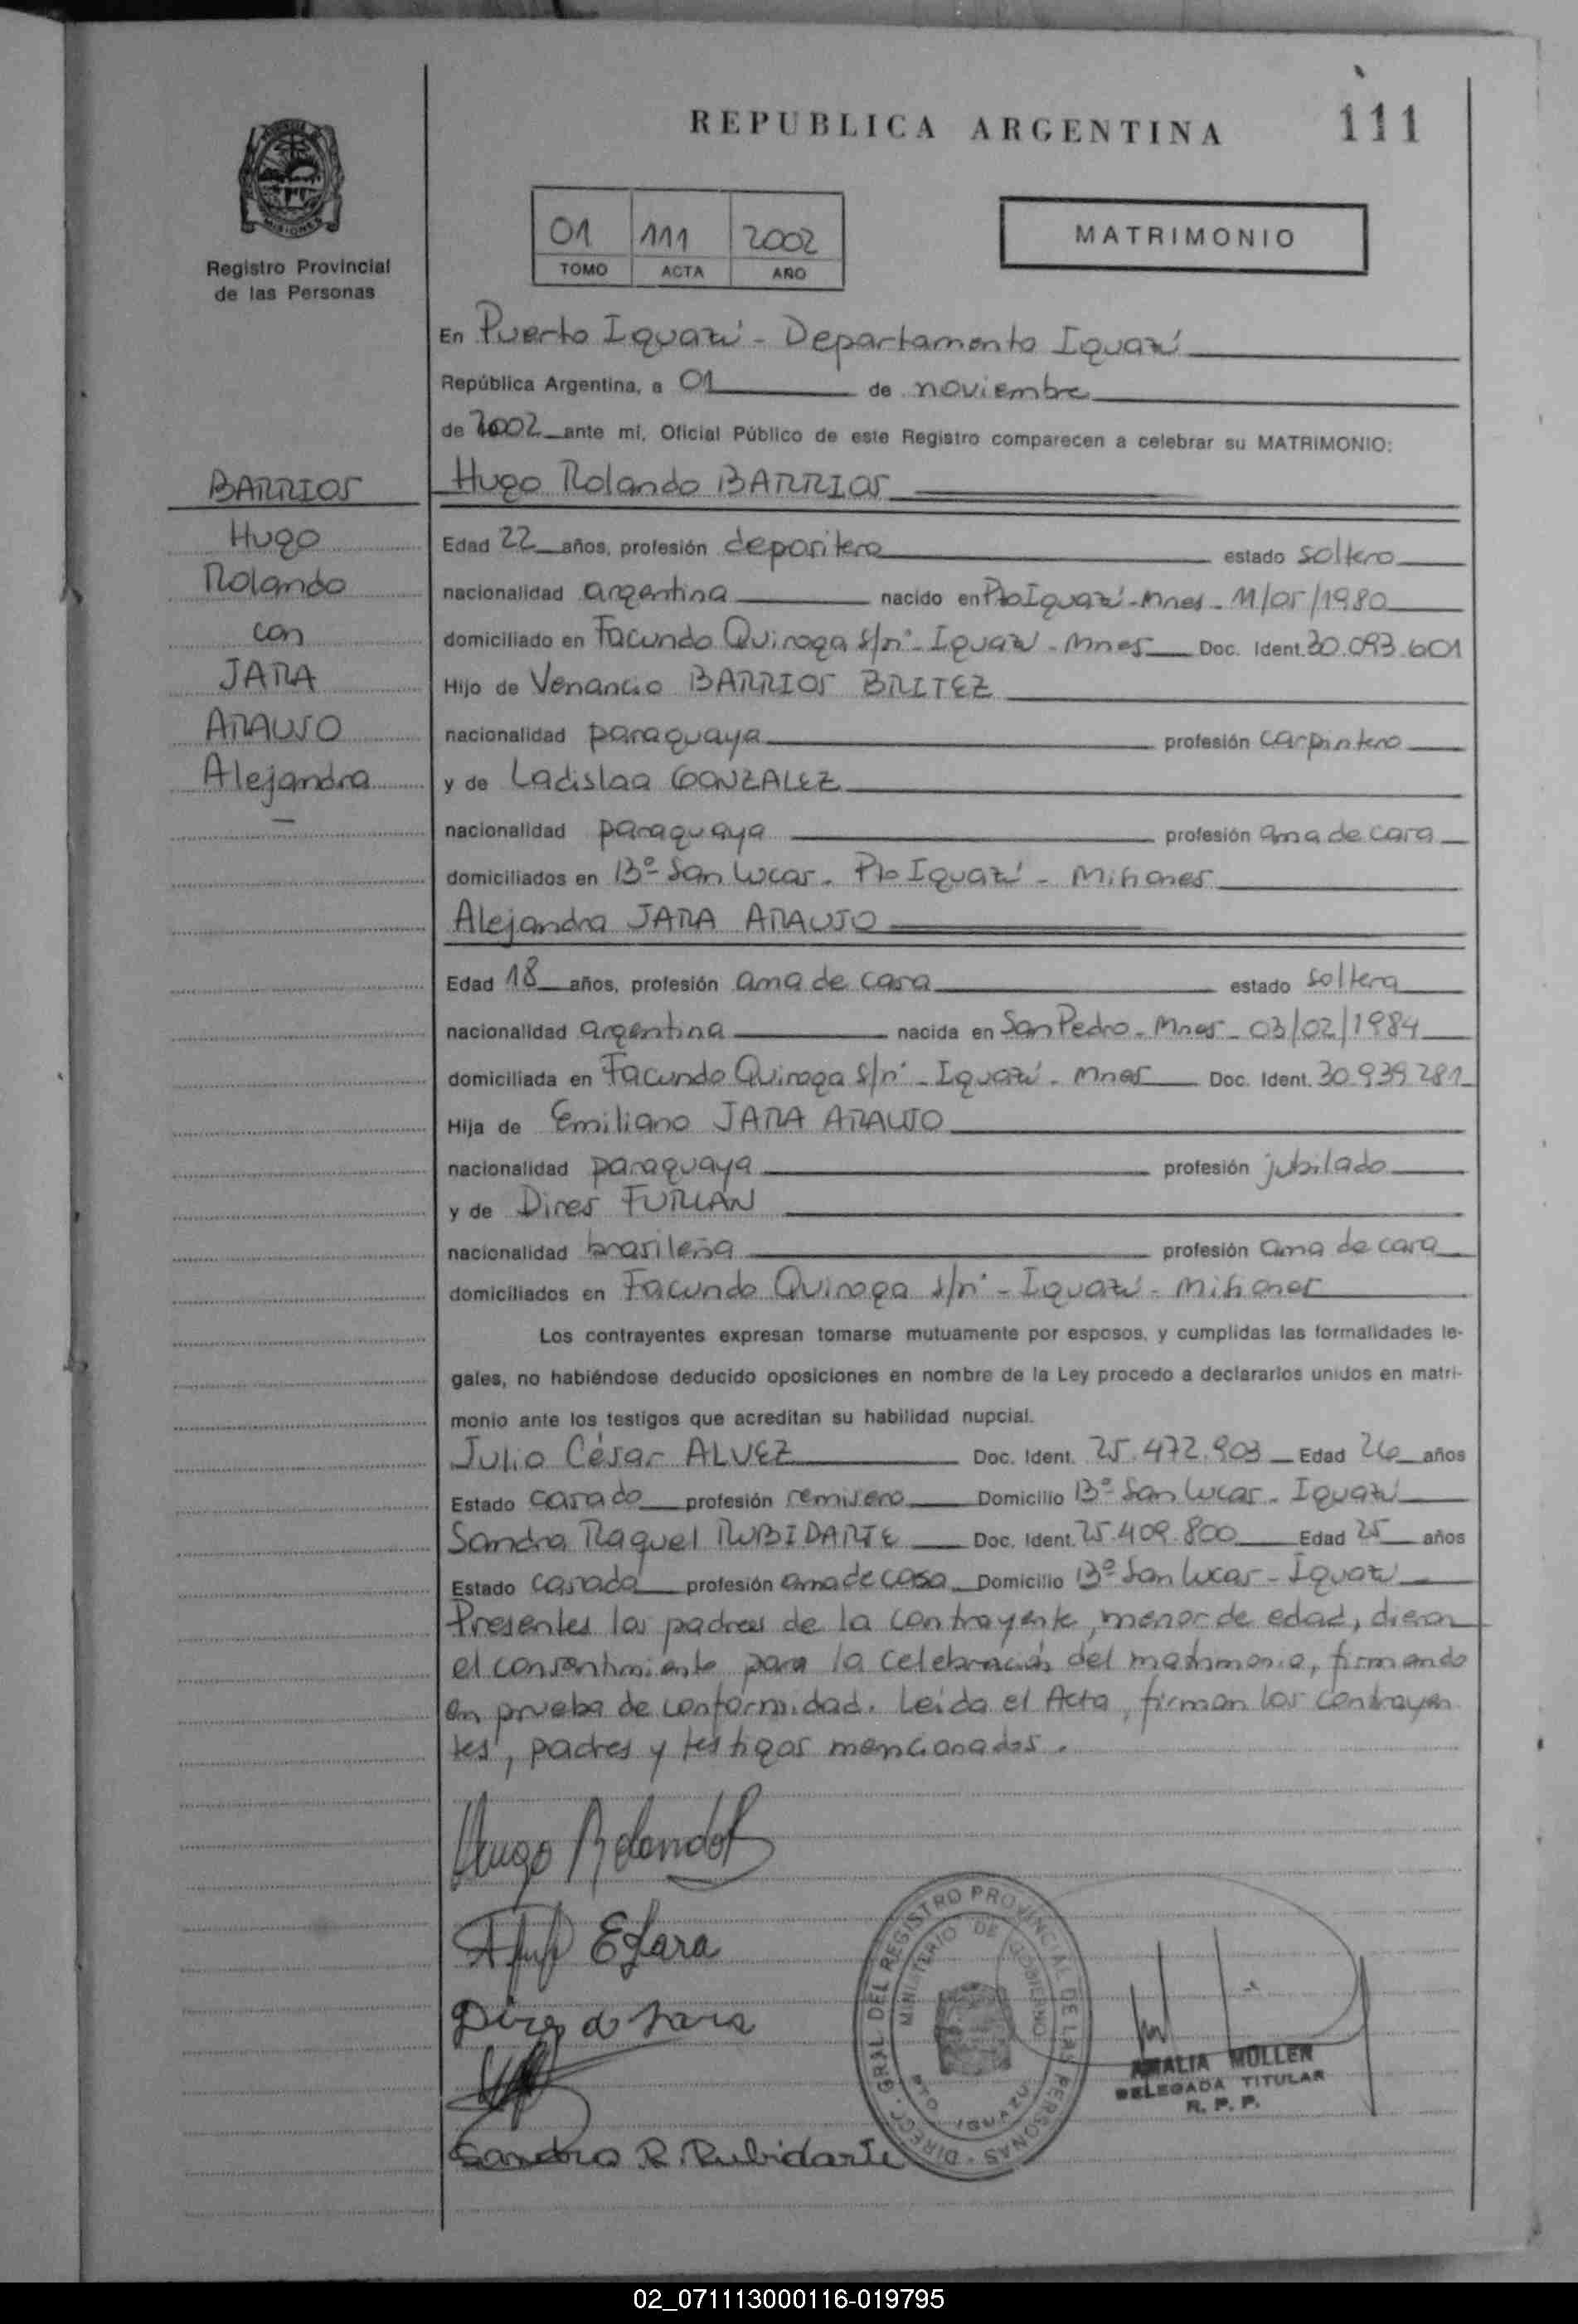 REPUBLICA ARGENTINA
111
MISIONES
Registro Provincial
de las Personas
01 111 2002
TOMO ACTA AÑO
MATRIMONIO
En Puerto Iguazú - Departamento Iguazú
República Argentina, a 01 de noviembre
de 2002 ante mí, Oficial Público de este Registro comparecen a celebrar su MATRIMONIO:
BARRIOS
Hugo
Rolando
con
JARA
ARAUJO
Alejandra
Hugo Rolando BARRIOS
Edad 22 años, profesión depositero estado soltero
nacionalidad argentina nacido en Pto Iguazú - Mnes - 11/05/1980
domiciliado en Facundo Quiroga s/nº - Iguazú - Mnes Doc. Ident. 30.093.601
Hijo de Venancio BARRIOS BRITEZ
nacionalidad paraguaya profesión carpintero
y de Ladislaa GONZALEZ
nacionalidad paraguaya profesión ama de casa
domiciliados en Bº San Lucas - Pto Iguazú - Misiones
Alejandra JARA ARAUJO
Edad 18 años, profesión ama de casa estado soltera
nacionalidad argentina nacida en San Pedro - Mnes - 03/02/1984
domiciliada en Facundo Quiroga s/nº - Iguazú - Mnes Doc. Ident. 30.939.281
Hija de Emiliano JARA ARAUJO
nacionalidad paraguaya profesión jubilado
y de Dires FURLAN
nacionalidad brasileña profesión ama de casa
domiciliados en Facundo Quiroga s/nº - Iguazú - Misiones
Los contrayentes expresan tomarse mutuamente por esposos, y cumplidas las formalidades le-
gales, no habiéndose deducido oposiciones en nombre de la Ley procedo a declararlos unidos en matri-
monio ante los testigos que acreditan su habilidad nupcial.
Julio César ALVEZ Doc. Ident. 25.472.903 Edad 26 años
Estado casado profesión remisero Domicilio Bº San Lucas - Iguazú
Sandra Raquel RUBIDARTE Doc. Ident. 25.409.800 Edad 25 años
Estado casada profesión ama de casa Domicilio Bº San Lucas - Iguazú
Presentes los padres de la contrayente, menor de edad, dieron
el consentimiento para la celebración del matrimonio, firmando
en prueba de conformidad. Leída el Acta, firman los contrayen
tes, padres y testigos mencionados.
Hugo Rolando B
E Jara
Dires de Jara
Sandra R. Rubidarte
DIRECC. GRAL DEL REGISTRO PROVINCIAL DE LAS PERSONAS
MINISTERIO DE GOBIERNO
PTO. IGUAZU
AMALIA MULLER
DELEGADA TITULAR
R. P. P.
02_071113000116-019795